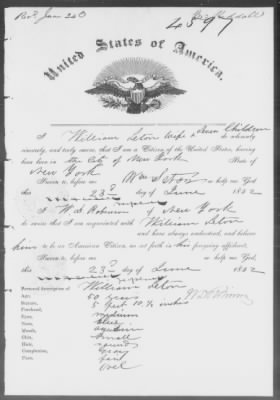 4597
United States of America.
I William Seton Wife & Children do solemnly,
sincerely, and truly swear, that I am a Citizen of the United States, having
been born in the City of New York State of
New York
Sworn to, before me Wm Seton so help me God,
this 23d day of June 1852
I W. S. Robinson of New York
do swear that I am acquainted with William Seton
and have always understood, and believe
him to be an American Citizen, as set forth in his foregoing affidavit,
Sworn to, before me so help me God,
this 23d day of June 1852
Personal description of William Seton
Age: 50 years
Stature, 5 feet 10 1/2 inches
Forehead, medium
Eyes, blue
Nose, aquiline
Mouth, small
Chin, round
Hair, gray
Complexion, fair
Face, oval